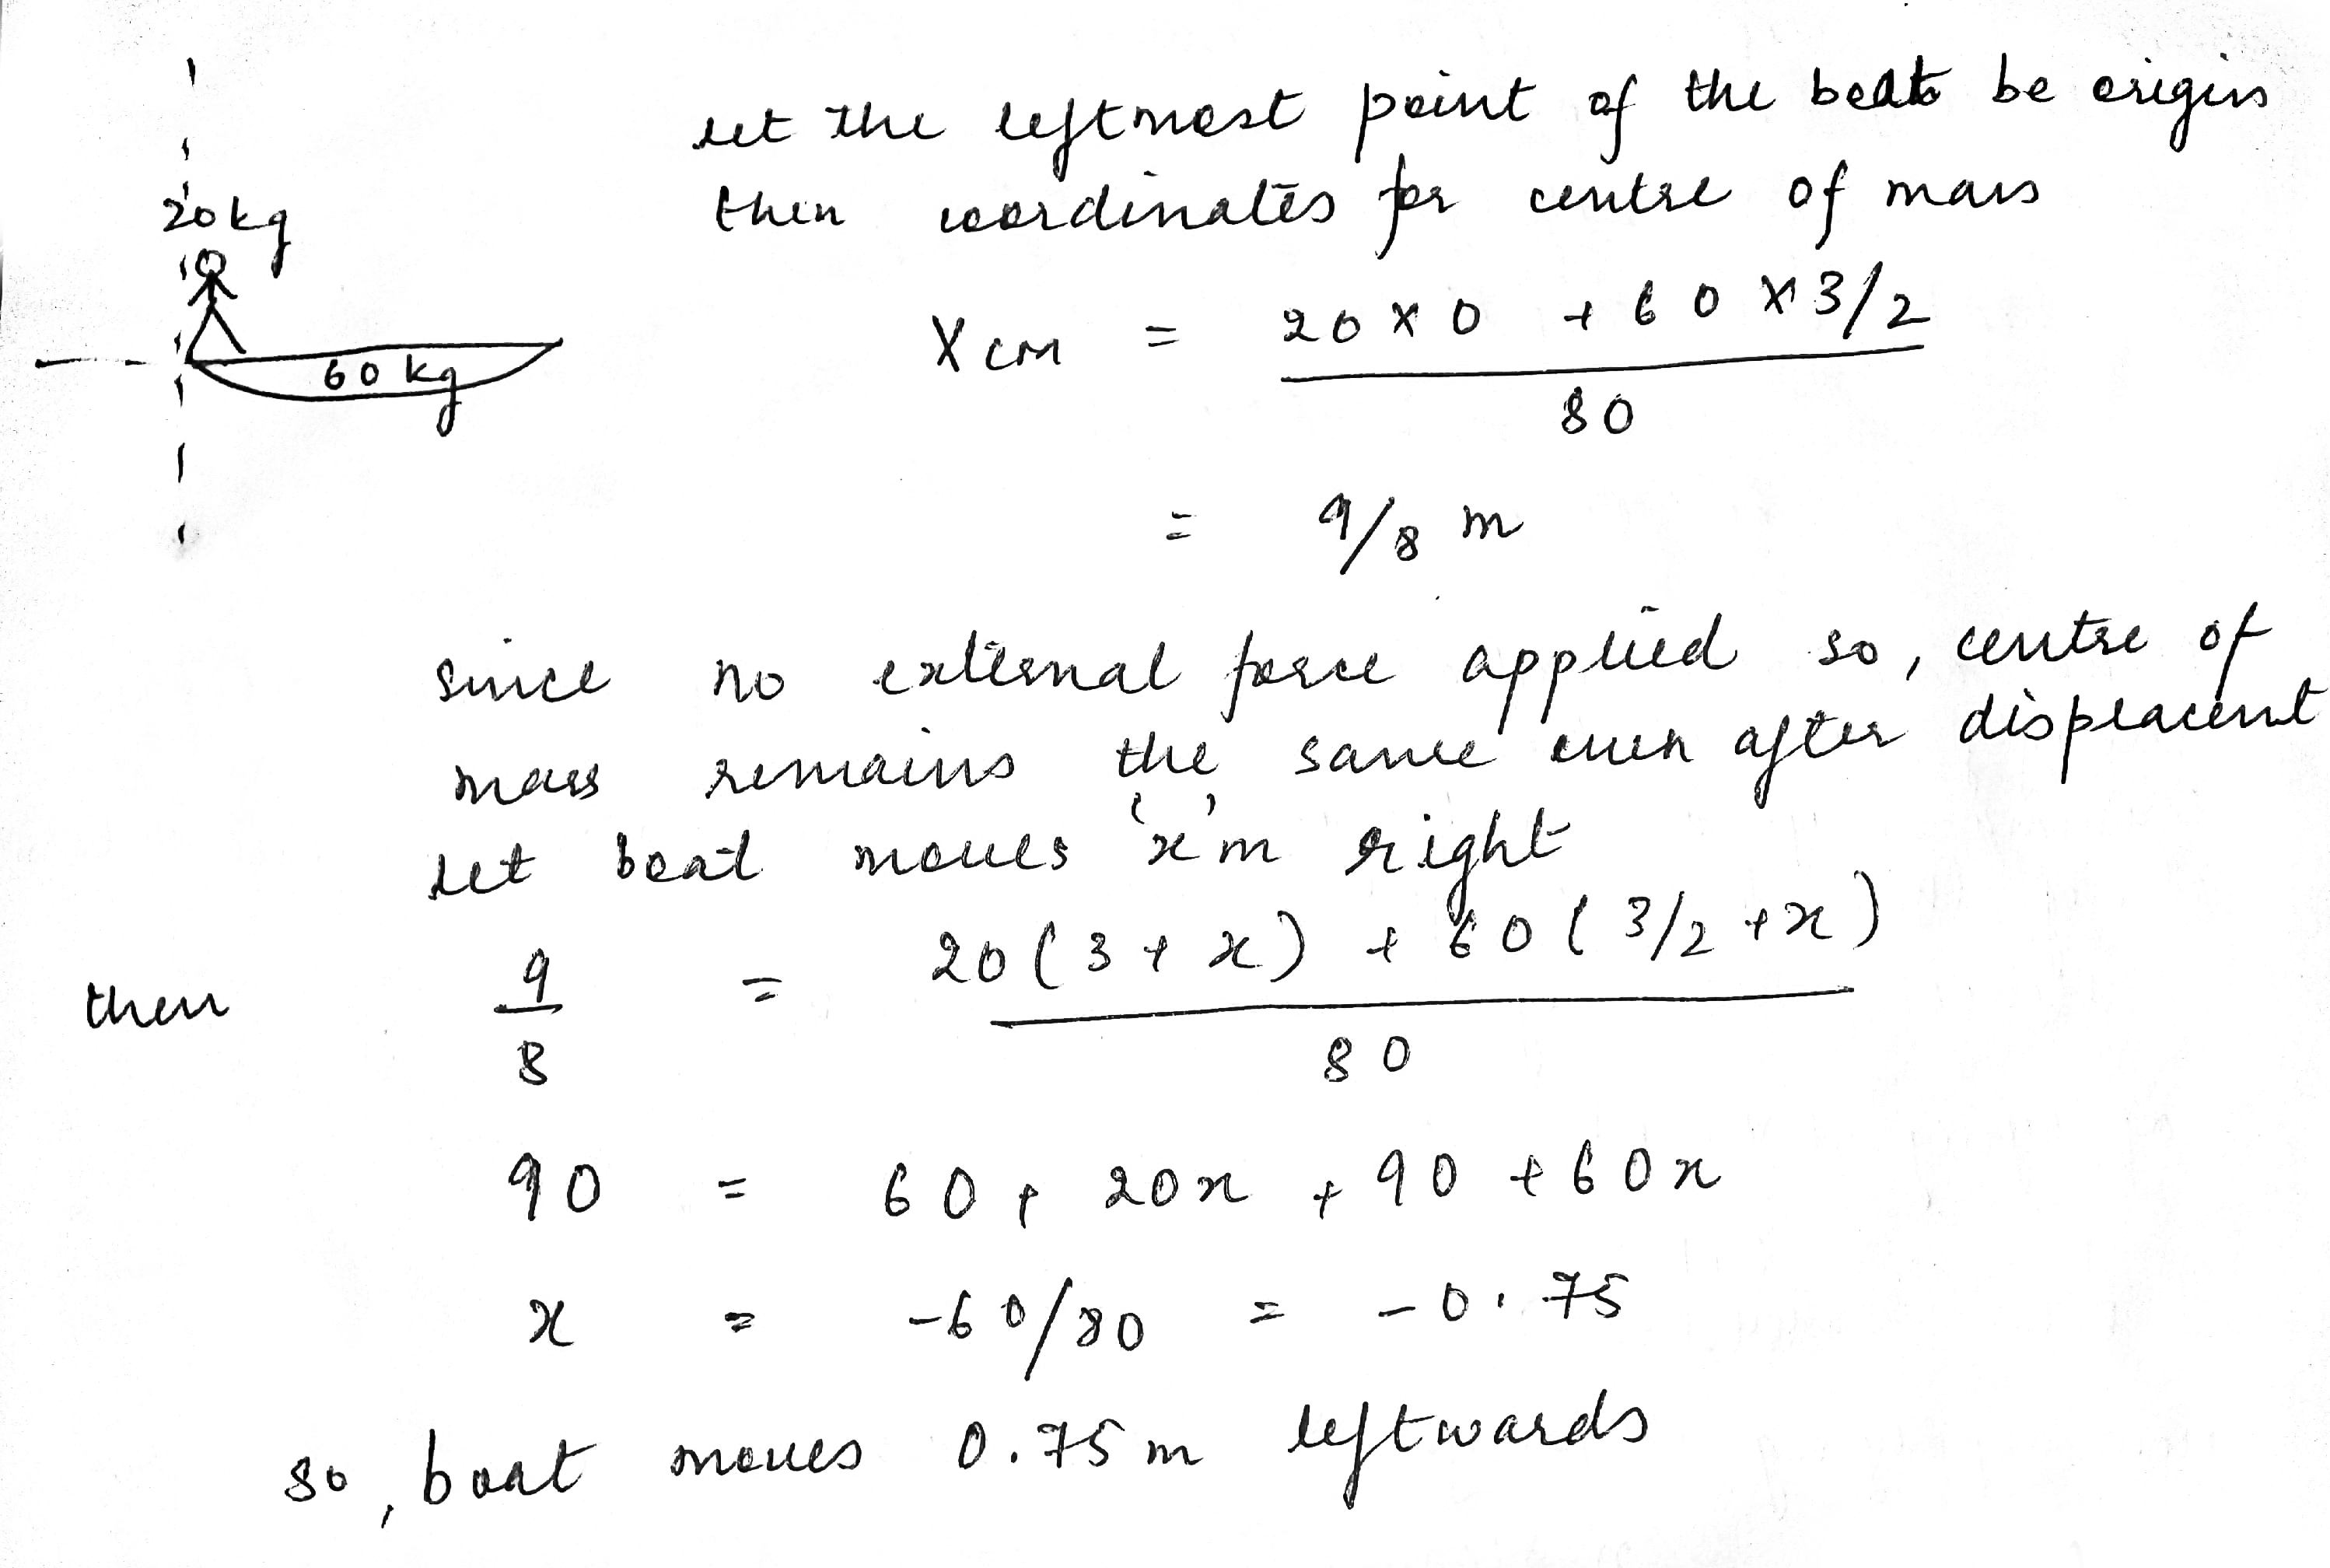 20kg
60 kg
Let the leftmost point of the boat be origin
then coordinates for centre of mass
Xcm = 20 x 0 + 60 x 3/2
80
= 9/8 m
since no external force applied so, centre of
mass remains the same even after displacemt
Let boat moves 'x'm right
then 9/8 = 20(3 + x) + 60(3/2 + x)
80
90 = 60 + 20x + 90 + 60x
x = -60/80 = -0.75
so, boat moves 0.75 m leftwards